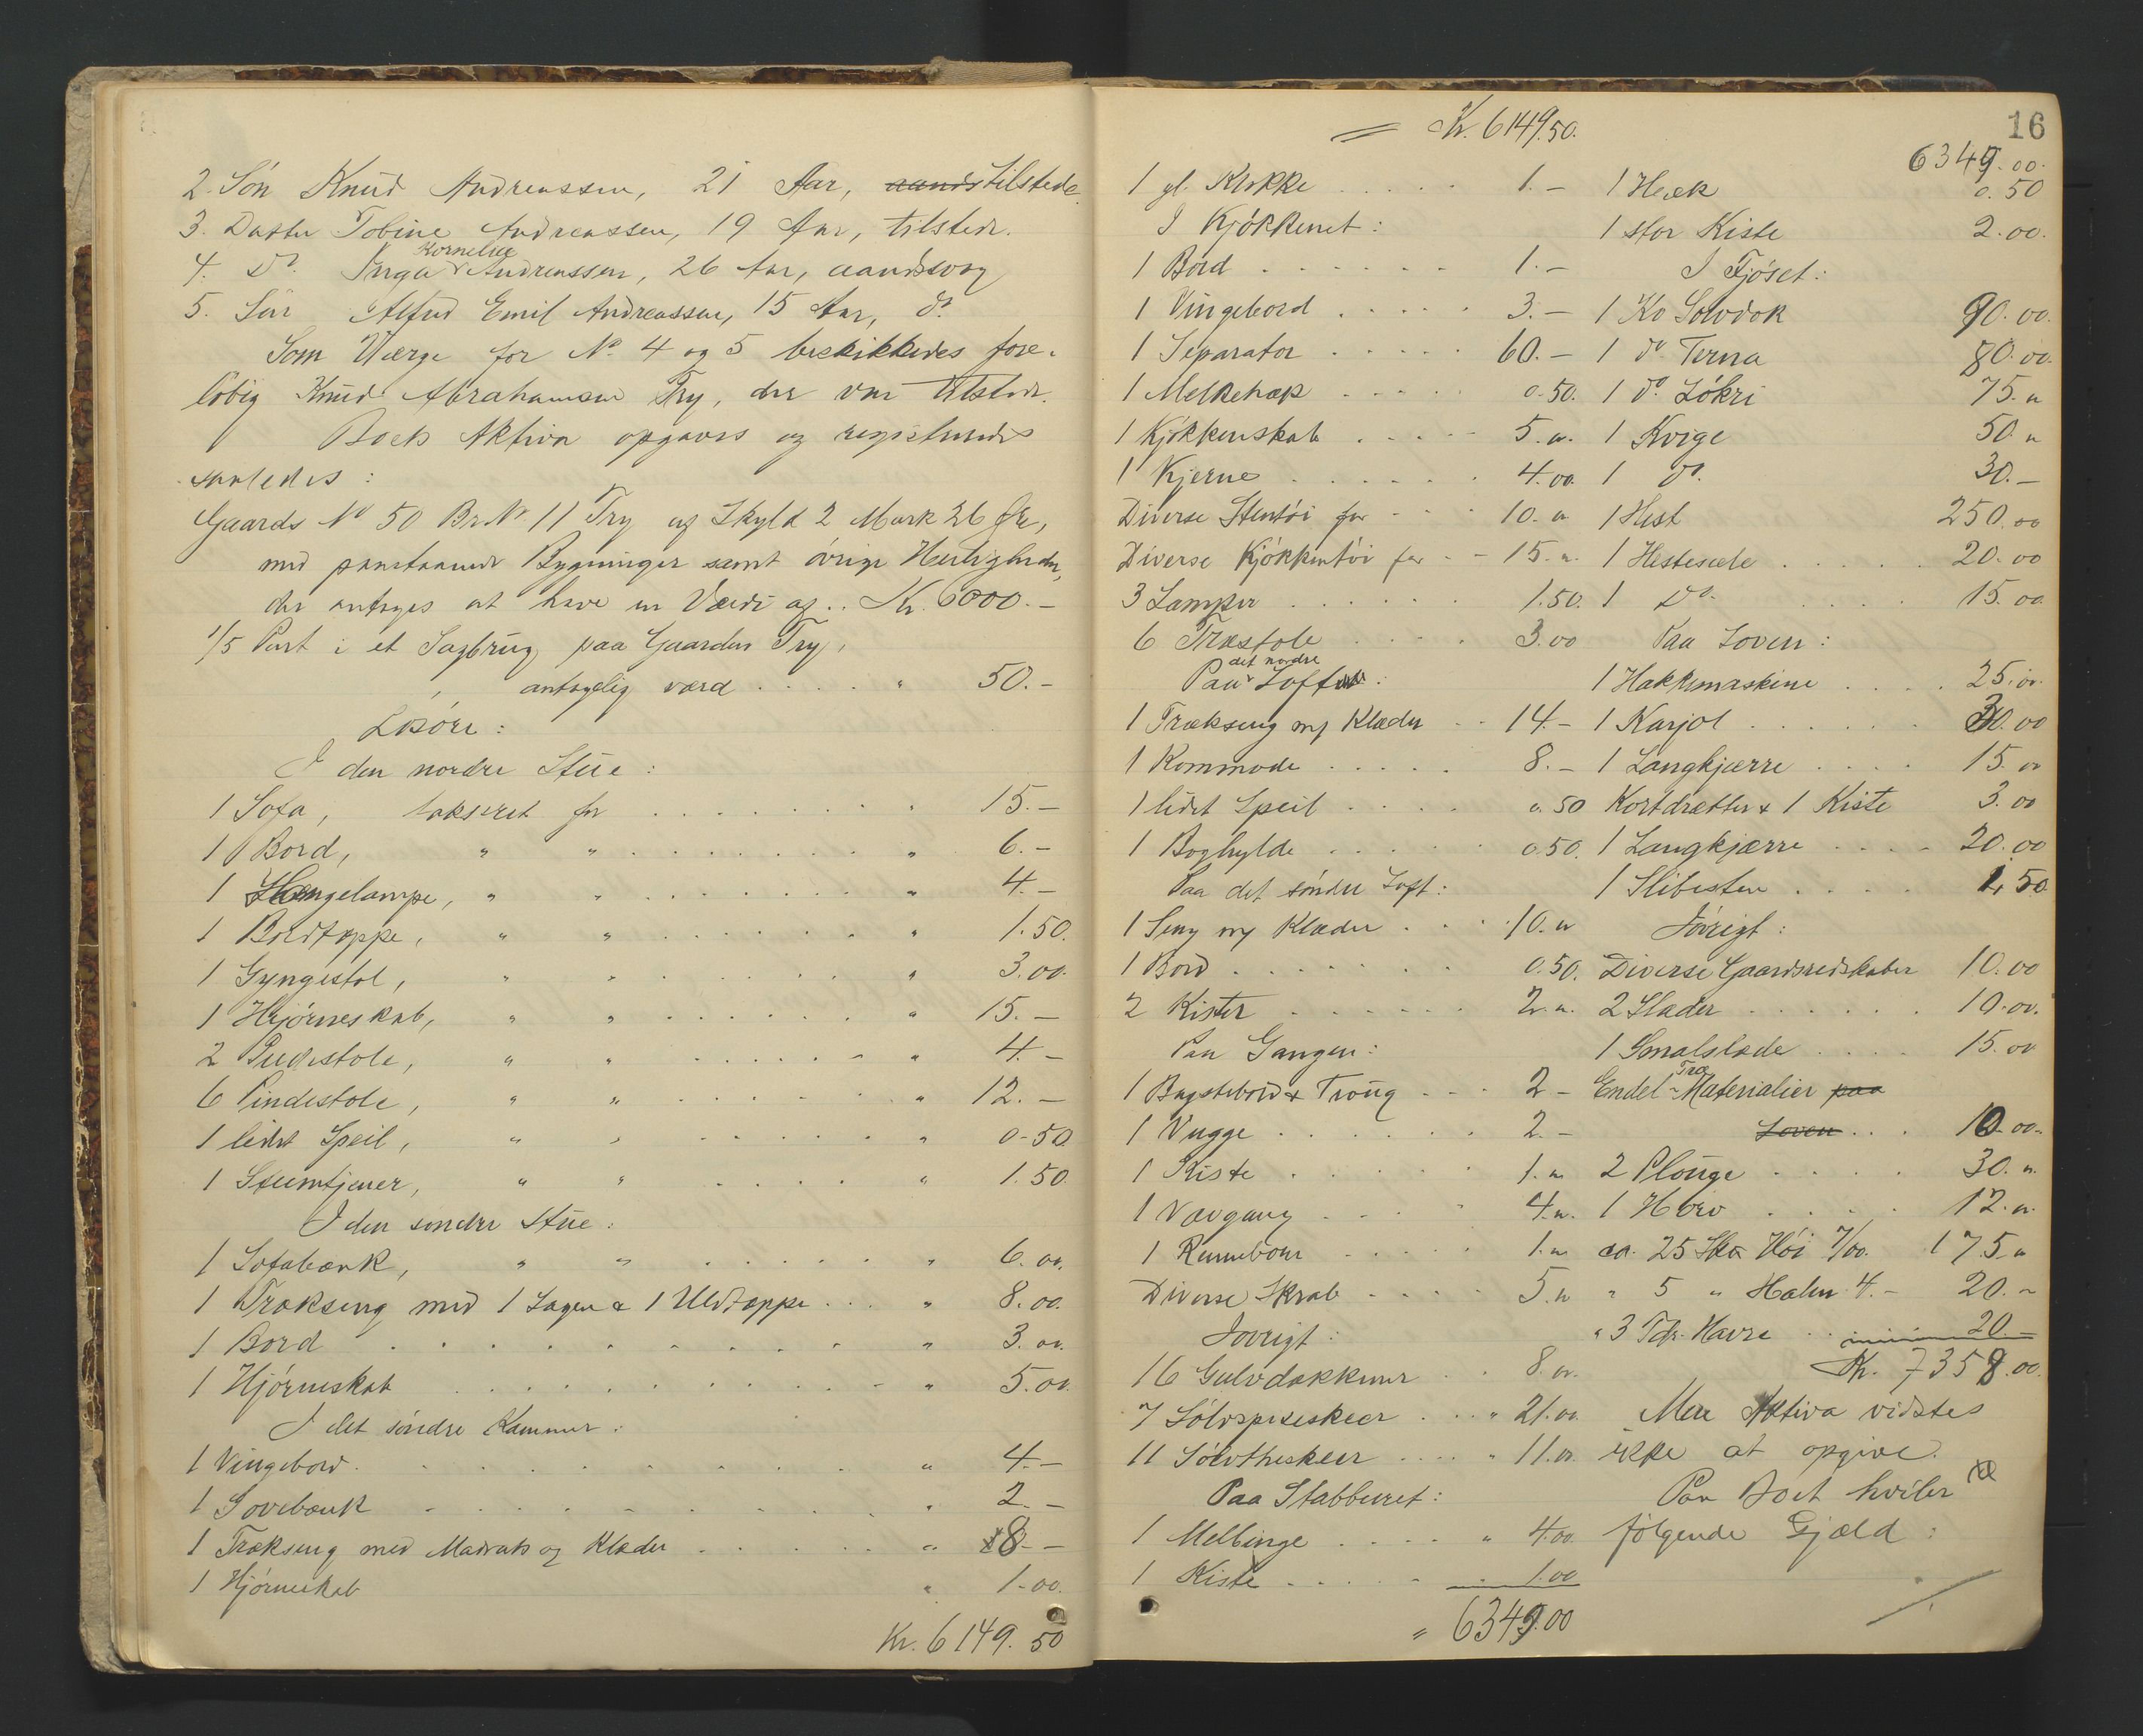 2. Sön Knud Andreassen, 21 Aar, aands tilstede.
3. Datter Tobine Andreassen, 19 Aar, tilstede.
Kornelie
4. Do. Inga Andreassen, 26 Aar, aandssvag
5. Sön Alfred Emil Andreassen, 15 Aar, do
Som Værge for No 4 og 5 beskikkedes fore-
löbig Knud Abrahamsen Try, der var tilstede.
Boets Aktiva opgaves og registreredes
saaledes:
Gaards No 50 Br.Nr 11 Try af Skyld 2 Mark 26 Øre,
med paastaaende Bygninger samt övrige Herligheder,
der antages at have en Værdi af .. Kr. 6000.-
1/5 Part i et Sagbrug paa Gaarden Try,
antagelig værd . . . . . " 50.-
Lösöre:
I den nordre Stue:
1 Sofa, takseret for . . . . . . . " 15.-
1 Bord, " " . . . . . . . " 6.-
1 Hængelampe, " . . . . . . . " 4.-
1 Bordtæppe, " " . . . . . . . " 1.50.
1 Gyngestol, " " . . . . . . . " 3.00.
1 Hjörneskab, " " . . . . . . . " 15.-
2 Pudestole, " " . . . . . . . " 4.-
6 Pindestole, " " . . . . . . . " 12.-
1 lidet Speil, " " . . . . . . . " 0-50
1 Stumtjener, " " . . . . " 1.50
I den söndre Stue:
1 Sofabænk, " " . . . . . . " 6.00.
1 Trækseng med 1 Lagen & 1 Uldtæppe . . . " 8.00.
1 Bord . . . . . . . . . . " 3.00.
1 Hjörneskab . . . . . . . . . . " 5.00.
I det söndre Kammer:
1 Vingebord . . . . . . . . . " 4.-
1 Sovebænk . . . . . . . . . " 2.-
1 Trækseng med Madrats og Klæder . . . . . . " 8.-
1 Hjörneskab " 1-00.
Kr. 6149.50
16
= Kr. 6149.50.
1 gl. Klokke . . . . . 1.-
I Kjökkenet:
1 Bord . . . . . . 1.-
1 Vingebord . . . . . 3.-
1 Separator . . . . . 60.-
1 Melkehæk . . . . 0.50.
1 Kjökkenskab . . . . . 5.00.
1 Kjerne . . . . . . 4.00.
Diverse Stentöi for . . . 10.00
Diverse Kjökkentöi for - - 15.00.
3 Lamper . . . . . . 1.50.
6 Træstole . . . . 3.00
det nordre
Paa Loft:
1 Trækseng m/ Klæder . . 14.-
1 Kommode . . . . . 8.-
1 lidet Speil . . . . 0.50
1 Boghylde . . . . . 0.50.
Paa det söndre Loft:
1 Seng m/ Klæder . . . . 10.00
1 Bord . . . . . . . 0.50.
2 Kister . . . . . . 2.00.
Paa Gangen:
1 Bagstebord & Troug . . . 2-
1 Vugge . . . . . . 2.-
1 Kiste . . . . . 1.00
1 Vævgang . . . . 4.00.
1 Rennebom . . . . . 1.00
Diverse Skrab . . . . 5.00
Iövrigt:
16 Gulvdækkener . . 8.00.
7 Sölvspiseskeer . . . " 21.00
11 Sölvtheskeer . . . . " 11.00.
Paa Stabburet:
1 Melbinge . . . . " 4.00.
1 Kiste . . . . . . 1.00
" 6349.00
6349.00.
1 Hæk 0.50
1 stor Kiste 2.00.
I Fjöset:
1 Ko Solvdok 90.00.
1 do Terna 80.00.
1 do Lökri 75.00
1 Kvige 50.00
1 do. 30.-
1 Hest 250.00
1 Hestesele . . . . . 20.00
1 Do. . . . . 15.00
Paa Loven:
1 Hakkemaskine . . . . 25.00.
1 Karjol . . . . . . 30.00
1 Langkjærre . . . . 15.00
Kortdrætter & 1 Kiste 3.00
1 Langkjærre . . . . 20.00
1 Slibesten . . . . 1.50
Iövrigt:
Diverse Gaardsredskaber 10.00
2 Slæder . . . . . . 10.00.
1 Smalslæde . . . . 15.00
Træ
Endel Materialier paa
Loven . . . 10.00.
2 Plouge . . . . . 30.00.
1 Horv . . . . 12.00.
ca. 25 Sk℔ Höi 7/00. 175.00
" 5 " Halm 4.- 20.-
" 3 Tdr. Havre . . . . 20.-
Kr. 7358.00.
Mere Aktiva vidstes
ikke at opgive.
Paa Boet hviler
følgende Gjæld: